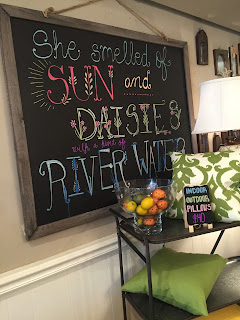 She smelled of
SUN and
DAISIES
with a hint of
RIVER WATER
INDOOR
OUTDOOR
PILLOWS
$40